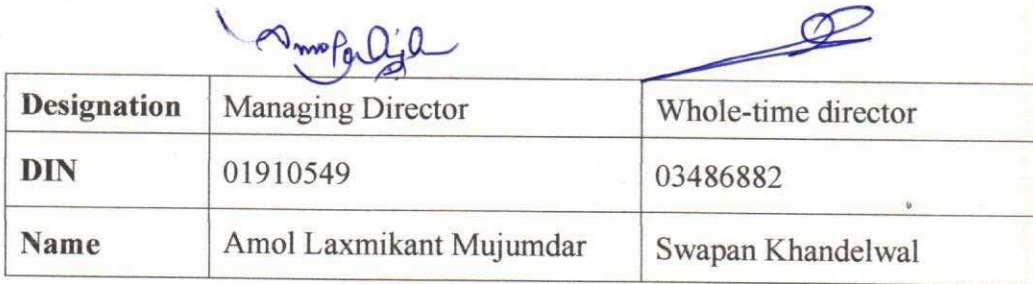 Designation Managing Director Whole-time director
DIN 01910549 03486882
Name Amol Laxmikant Mujumdar Swapan Khandelwal